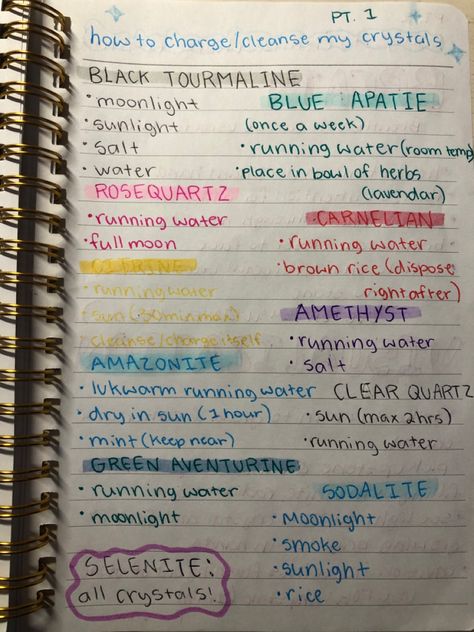 PT. 1
how to charge/cleanse my crystals
BLACK TOURMALINE
• moonlight
• sunlight
• salt
• water
BLUE APATIE
(once a week)
• running water (room temp)
• place in bowl of herbs
(lavendar)
ROSEQUARTZ
• running water
• full moon
CARNELIAN
• running water
• brown rice (dispose
right after)
CITRINE
• running water
• sun (30 min max)
• cleanse/charge itself
AMETHYST
• running water
• salt
AMAZONITE
• lukwarm running water
• dry in sun (1 hour)
• mint (keep near)
CLEAR QUARTZ
• sun (max 2hrs)
• running water
GREEN AVENTURINE
• running water
• moonlight
SODALITE
• Moonlight
• smoke
• sunlight
• rice
SELENITE:
all crystals!